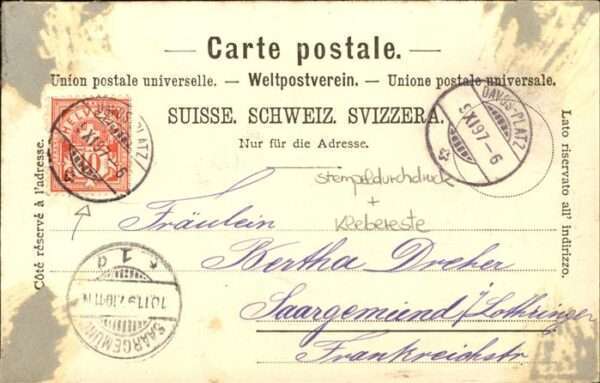 Carte postale.
Union postale universelle. — Weltpostverein. — Unione postale universale.
SUISSE. SCHWEIZ. SVIZZERA.
Nur für die Adresse.
Côté réservé à l'adresse.
Lato riservato all' indirizzo.
HELVETIA
10
DAVOS-PLATZ
9 XI 97-6
DAVOS-PLATZ
9 XI 97-6
stempeldurchdruck
+
Klebereste
Fräulein
Bertha Dreher
Saargemünd / Lothringen
Frankreichstr.
SAARGEMÜND
1 d